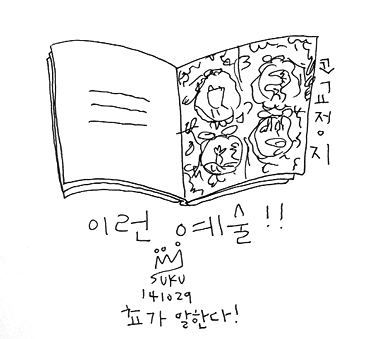 이런 예술!!
SUKU
141029
말한다!